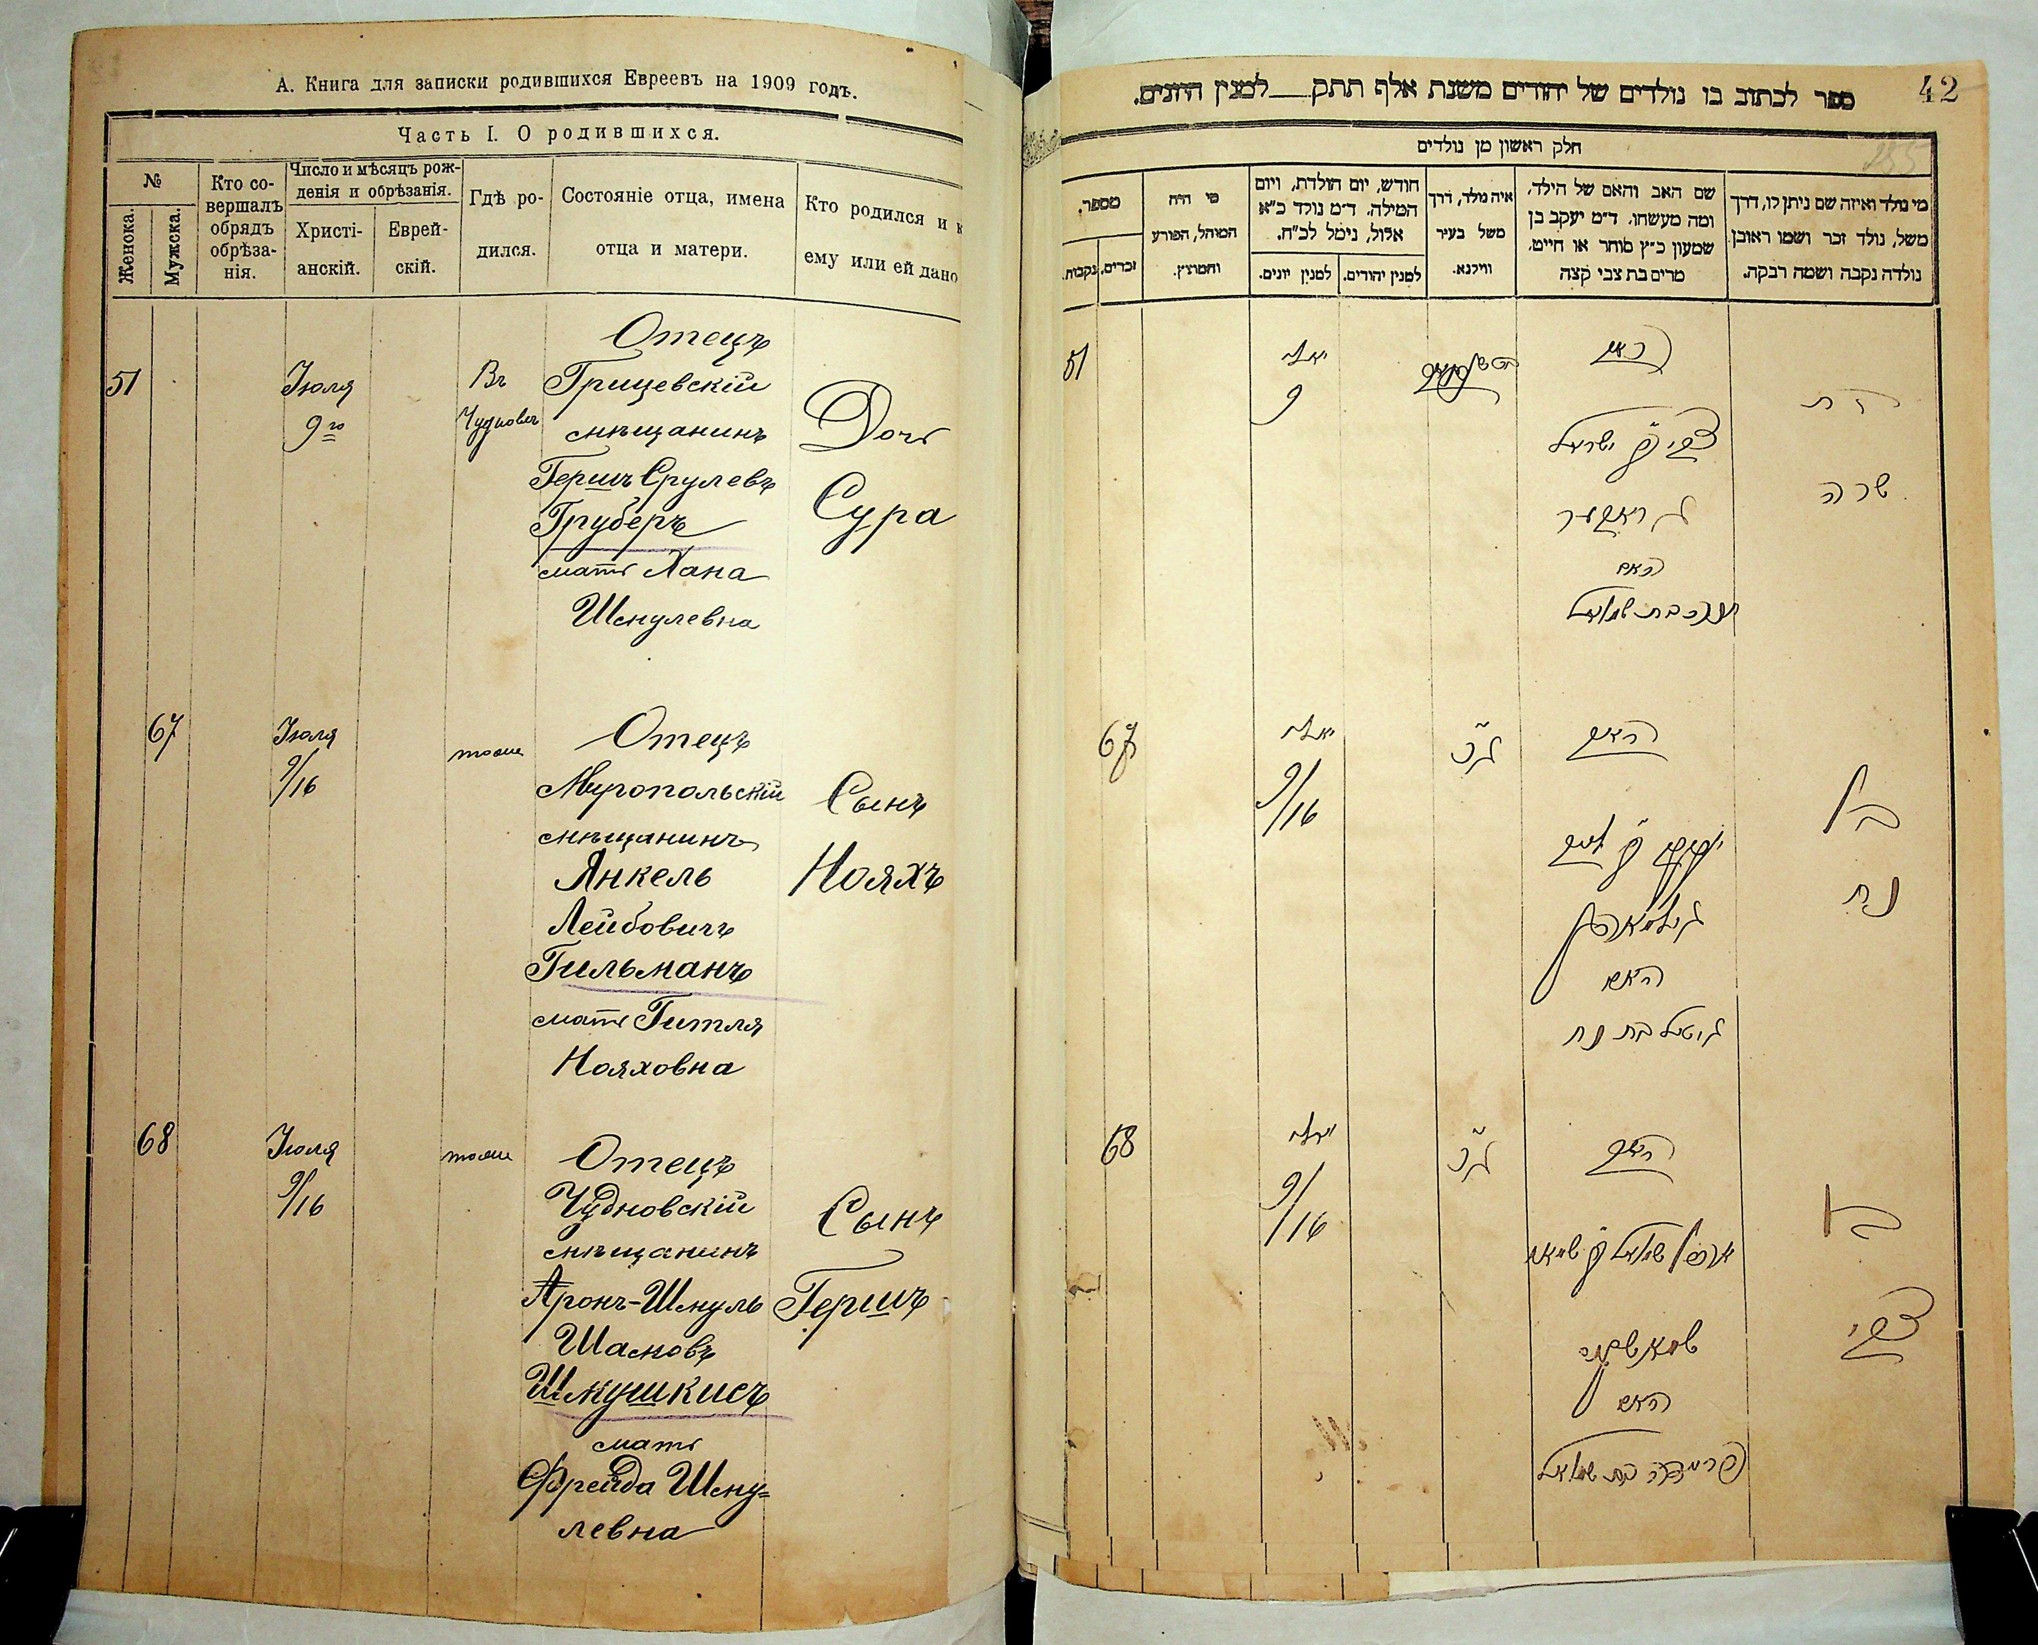 А. Книга для записки родившихся Евреевъ на 1909 годъ.
Часть I. О родившихся.
№
Женска.
Мужска.
Кто со-
вершалъ
обрядъ
обрѣза-
нія.
Число и мѣсяцъ рож-
денія и обрѣзанія.
Христі-
анскій.
Еврей-
скій.
Гдѣ ро-
дился.
Состояніе отца, имена
отца и матери.
Кто родился и к
ему или ей дано
51
Іюля
9го
Въ
Чудновѣ
Отецъ
Грицевскій
мѣщанинъ
Гершъ Срулевъ
Груберъ
мать Хана
Шмулевна
Дочь
Сура
67
Іюля
9/16
тоже
Отецъ
Миропольскій
мѣщанинъ
Янкель
Лейбовичъ
Гильманъ
мать Гитля
Нояховна
Сынъ
Нояхъ
68
Іюля
9/16
тоже
Отецъ
Чудновскій
мѣщанинъ
Аронъ-Шмуль
Шамовъ
Шмушкисъ
мать
Фрейда Шму=
левна
Сынъ
Гершъ
42
ספר לכתוב בו נולדים של יהודים משנת אלף תתק __ למנין היונים.
חלק ראשון מן נולדים
מי נולד ואיזה שם ניתן לו, דרך
משל, נולד זכר ושמו ראובן
נולדה נקבה ושמה רבקה.
שם האב והאם של הילד,
ומה מעשהו. ד״מ יעקב בן
שמעון כ״ץ סוחר או חייט,
מרים בת צבי קצה
איה נולד, דרך
משל בעיר
ווילנא.
חודש, יום הולדת, ויום
המילה. ד״מ נולד כ״א
אלול, נימל לכ״ח.
למנין יהודים.
למנין יונים.
מי היה
המוהל, הפורע
והמוצץ.
מספר.
זכרים.
נקבות.
51
יולי
9
האב
צבי ב״ר ישראל
גרובער
האם
חנה בת שמואל
בת
שרה
67
יולי
9/16
ג״כ
האב
יעקב ב״ר ליב
גילמאן
האם
גיטל בת נח
בן
נח
68
יולי
9/16
ג״כ
האב
האם
פריידה בת שמואל
בן
צבי